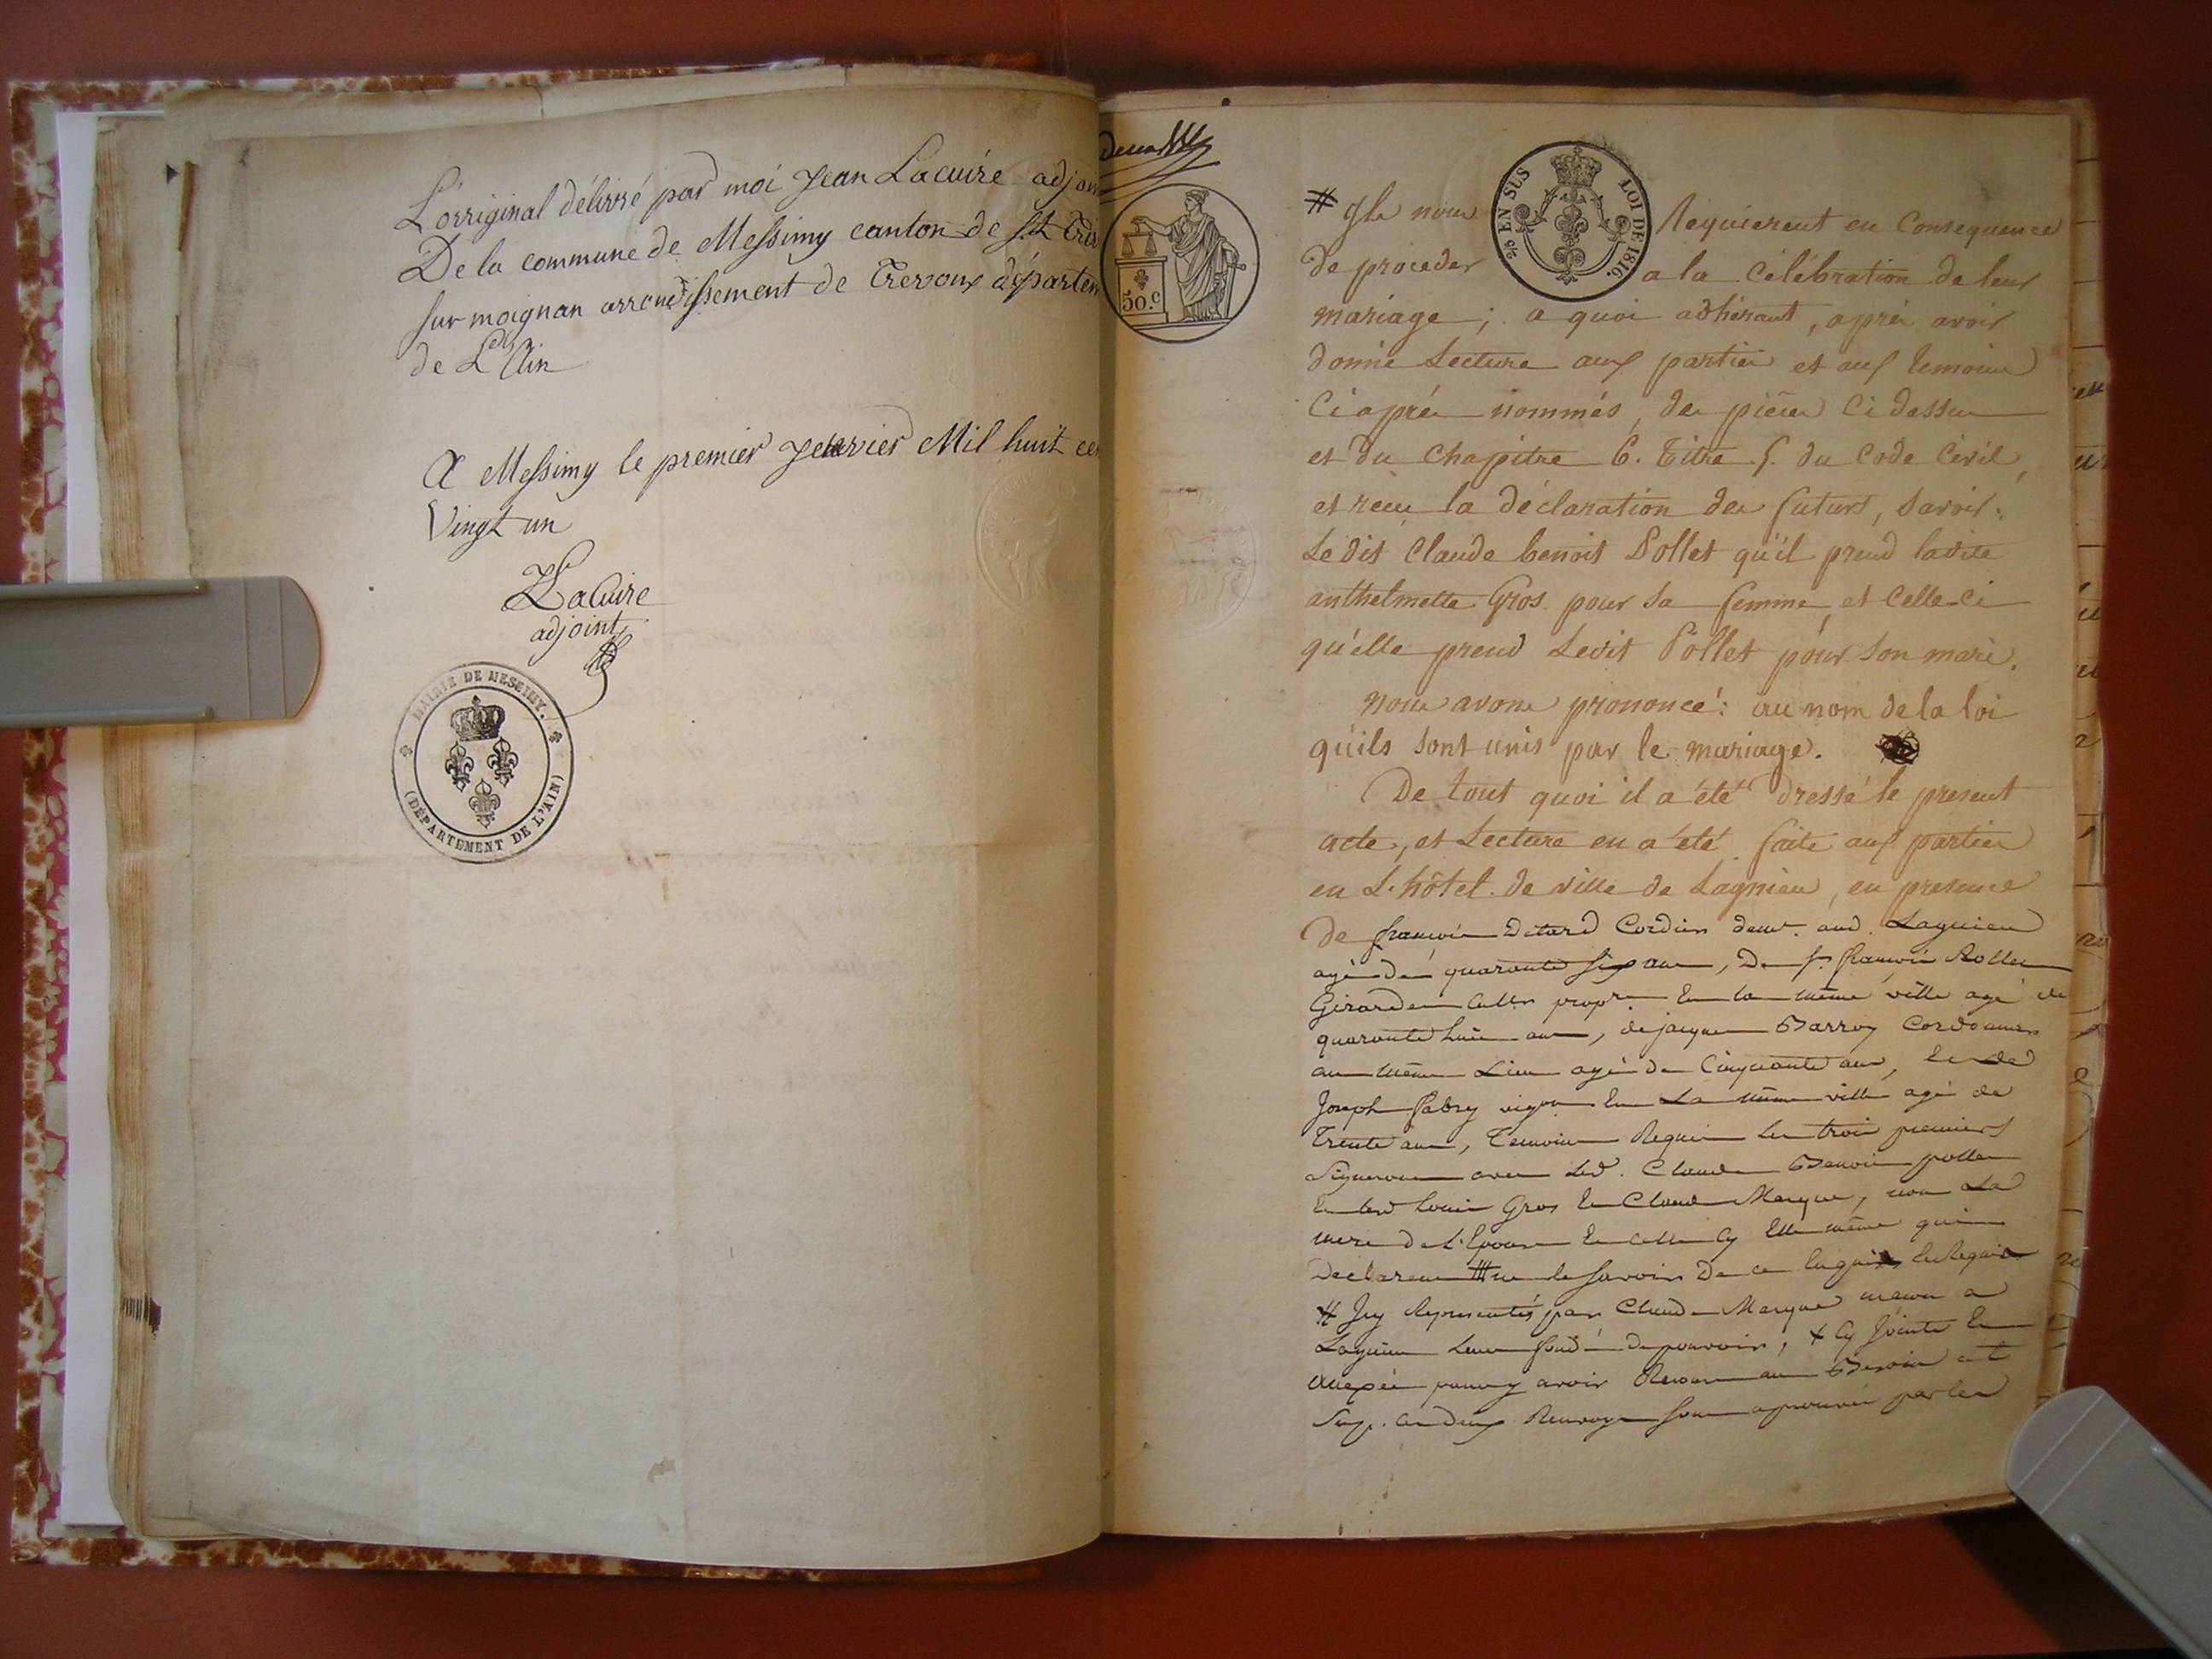 L'orriginal délivré par moi Jean Lacuire adjoin
De la commune de Messimy canton de St. Triv
sur moignan arrondissement de Trevoux départem
de L'Ain
A Messimy le premier Jenvier Mil huit cen
Vingt un
LaCuire
adjoint
MAIRIE DE MESSIMY.
(DÉPARTEMENT DE L'AIN)
50.c
EN SUS
LOI DE 1816.
# Ils nous Requierent en Consequence
de proceder a la Célébration de leur
mariage ; a quoi adhérant, aprés avoir
donné Lecture aux parties et aux temoins
Ci aprés nommés, des piéces Ci dessus
et du Chapitre 6. Titre 5. du Code Civil,
et reçu la déclaration des futurs, savoir:
Le dit Claude benoit Pollet qu'il prend ladite
anthelmette Gros pour sa femme, et Celle-Ci
qu'elle prend Ledit Pollet pour son mari.
nous avons prononcé: au nom de la loi
qu'ils sont unis par le mariage.
De tout quoi il a été dressé le present
acte, et Lecture en a été faite aux parties
en L'hôtel de ville de Lagnieu, en presence
De françois Detard Cordier demt. aud. Lagnieu
agé de quarante six ans, De Sr. françois Rollet
Girardet propre. En la même ville agé de
quarante huit ans, de jacques Barroy Cordonnier
au même Lieu agé de Cinquante ans, Et de
Joseph fabry vigon En La même ville agé de
Trente ans, Temoins Requis Les trois premiers
Signeront avec Led. Claude Benoit pollet
Et led Louis Gros Et Claude Marque, non La
mere de L'Epouse Et celle Cy Elle même qui
Declarent ne le savoir De ce Enquis Et Requis
# Icy Representés par Claude Marque macon a
Lagnieu Leur fondé de pouvoir, + Cy Jointe Et
Anexée pour y avoir Recours au Besoin
Ces deux Renvoys sont aprouvés par les